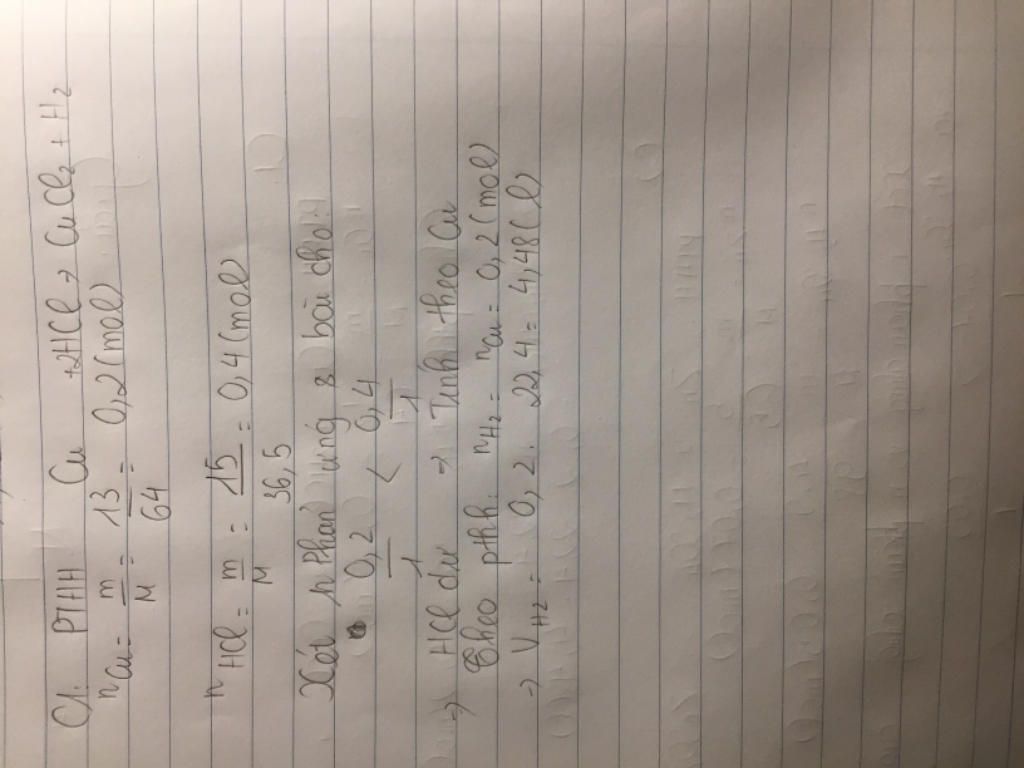 C1. PTHH Cu +2HCl → CuCl2 + H2
nCu = m/M = 13/64 = 0,2 (mol)
nHCl = m/M = 15/36,5 = 0,4 (mol)
Xét n phản ứng & bài cho:
0,2/1 < 0,4/1
=> HCl dư => Tính theo Cu
Theo pthh: nH2 = nCu = 0,2 (mol)
=> VH2 = 0,2 . 22,4 = 4,48 (l)